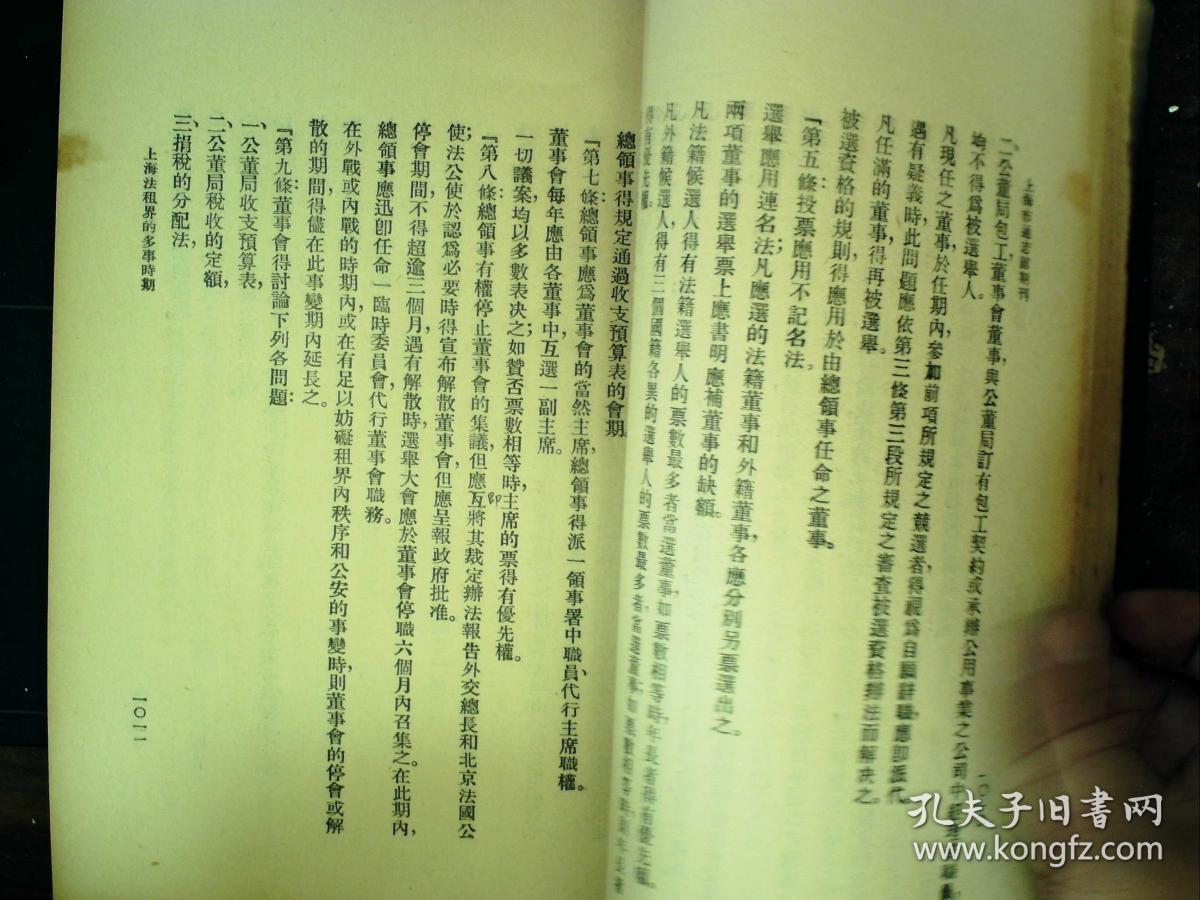 上海市通志館期刊
二、公董局包工董事會董事，與公董局訂有包工契約或承辦公用事業之公司中
均不得爲被選舉人。
凡現任之董事，於任期內，參加前項所規定之競選者，得視爲自願辭職，應即派代。
遇有疑義時，此問題應依第三條第三段所規定之審查被選資格辦法而解決之。
凡任滿的董事，得再被選舉。
被選資格的規則，得應用於由總領事任命之董事。
『第五條：投票應用不記名法。
選舉應用連名法，凡應選的法籍董事和外籍董事，各應分別另票選出之。
兩項董事的選舉票上應書明應補董事的缺額。
凡法籍候選人得有法籍選舉人的票數最多者當選董事，如票數相等時，年長者得有優先權。
凡外籍候選人得有三個國籍各異的選舉人的票數最多者，當選董事；如票數相等時，則年長者
得有優先權。
總領事得規定通過收支預算表的會期。
『第七條：總領事應爲董事會的當然主席，總領事得派一領事署中職員、代行主席職權。
董事會每年應由各董事中互選一副主席。
一切議案均以多數表決之；如贊否票數相等時，主席的票得有優先權。
『第八條：總領事有權停止董事會的集議，但應互將其裁定辦法報告外交總長和北京法國公
即
使；法公使於認爲必要時得宣布解散董事會，但應呈報政府批准。
停會期間不得超逾三個月，遇有解散時，選舉大會應於董事會停職六個月內召集之。在此期內，
總領事應迅卽任命一臨時委員會代行董事會職務。
在外戰或內戰的時期內，或在有足以妨礙租界內秩序和公安的事變時，則董事會的停會或解
散的期間得儘在此事變期內延長之。
『第九條：董事會得討論下列各問題：
一、公董局收支預算表，
二、公董局稅收的定額，
三、捐稅的分配法，
上海法租界的多事時期
一〇一一
孔夫子旧书网
www.kongfz.com